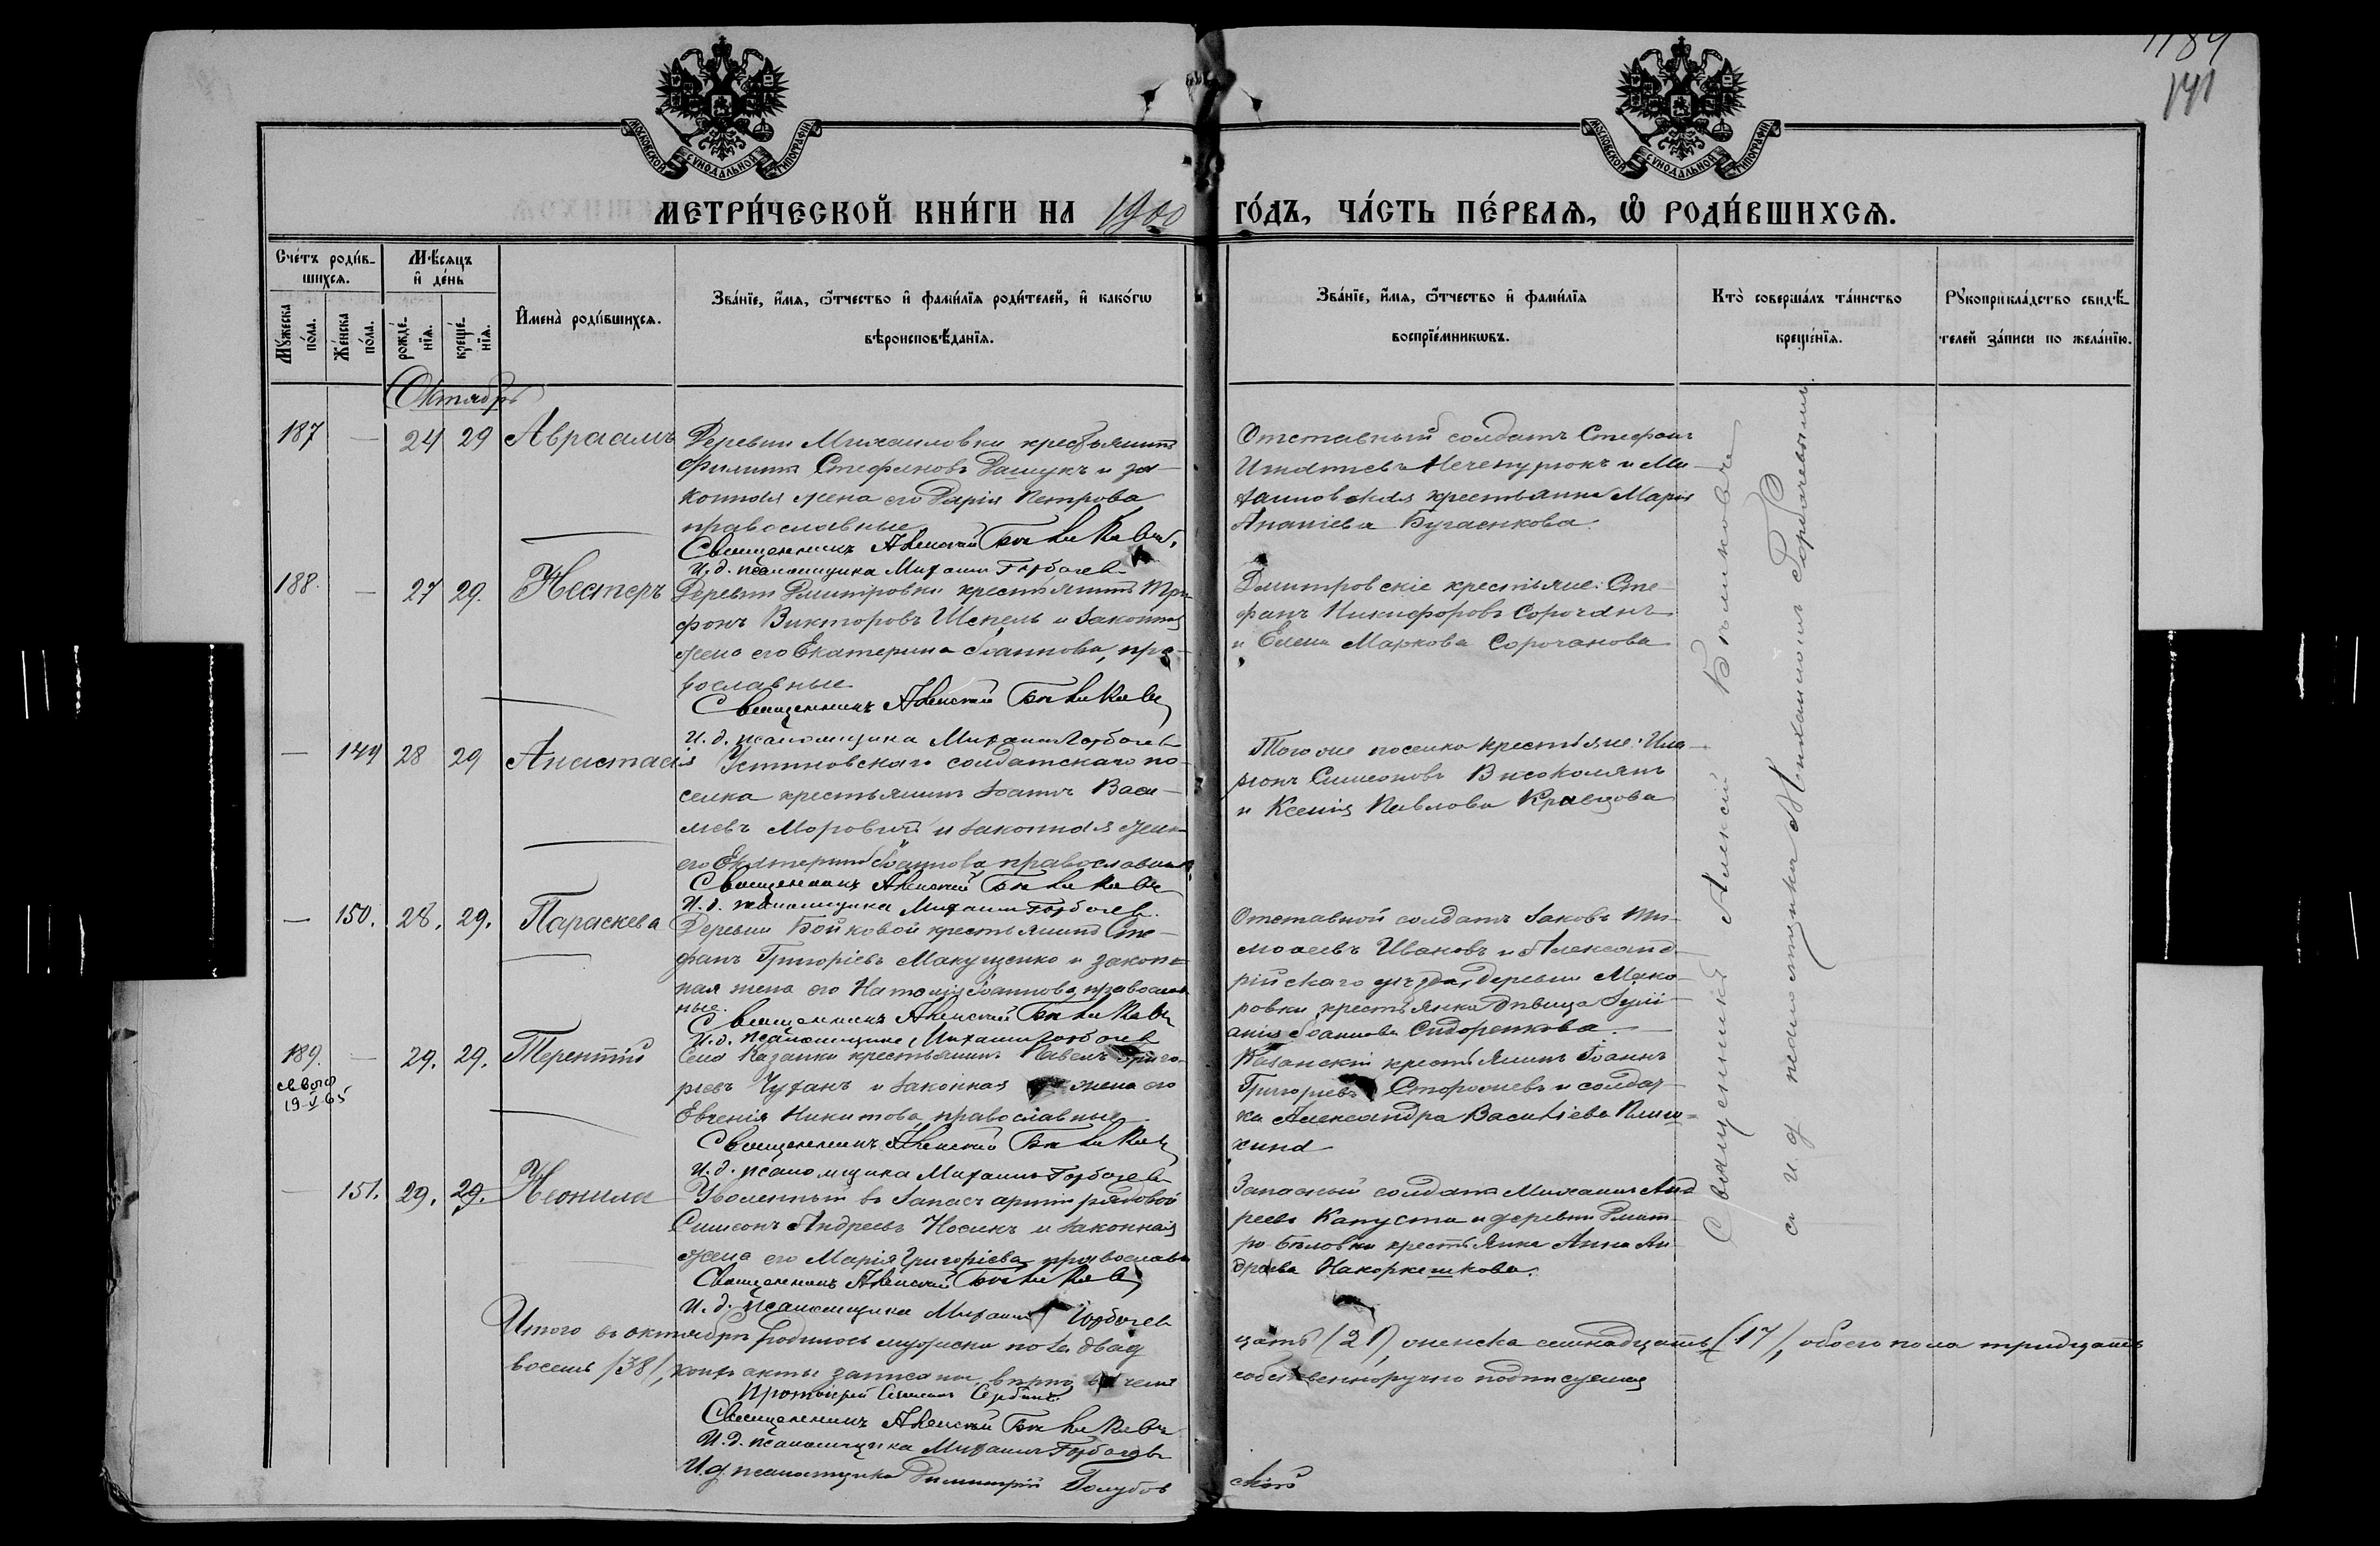 1189
141
МОСКОВСКОЙ СѴНОДАЛЬНОЙ ТИПОГРАФІИ
МОСКОВСКОЙ СѴНОДАЛЬНОЙ ТИПОГРАФІИ
МЕТРИ́ЧЕСКОЙ КНИ́ГИ НА 1900 ГО́ДЪ, ЧА́СТЬ ПЕ́РВАѦ, Ѽ РОДИ́ВШИХСѦ.
Сче́тъ роди́в-
шихсѧ.
Мꙋ́жеска по́ла.
Же́нска по́ла.
Мѣ́сѧцъ и҆ де́нь
рожде́-нїѧ.
креще́-нїѧ.
И҆мена̀ роди́вшихсѧ.
Зва́нїе, и҆́мѧ, ѻ҆́тчество и҆ фами́лїѧ роди́телей, и҆ како́гѡ
вѣроисповѣ́данїѧ.
Зва́нїе, и҆́мѧ, ѻ҆́тчество и҆ фами́лїѧ
воспрїе́мникѡвъ.
Кто̀ соверша́лъ та́инство
креще́нїѧ.
Рꙋкоприкла́дство свидѣ́-
телей за́писи по жела́нїю.
Октябрь
187 — 24 29 Авраамъ
Деревни Михаиловки крестьянинъ
Филиппъ Стефановъ Дащукъ и за-
конная жена его Дарія Петрова
православные
Священникъ Алексій
И. д. псаломщика Михаилъ Горбачев
Отставный солдатъ Стефанъ
Игнатiевъ Нечепурюкъ и Ми-
хаиловская крестьянка Марія
Ананіева Бугаенкова.
188. — 27 29. Несторъ
Деревни Дмитровки крестьянинъ Три-
фонъ Викторовъ Шепель и законная
жена его Екатерина Іоаннова, пра-
вославные
Священникъ Алексій
И. д. псаломщика Михаилъ Горбачев
Дмитровскіе крестьяне: Сте-
фанъ Никифоровъ Сорочанъ
и Елена Маркова Сорочанова
— 149 28 29 Анастасія
Устиновскаго солдатскаго по-
селка крестьянинъ Іоаннъ Васи-
льевъ Моровичъ и законная жена
его Екатерина Іоаннова, православные
Священникъ Алексій
И. д. псаломщика Михаилъ Горбачев
Того же поселка крестьяне: Ила-
ріонъ Симеоновъ Високолянъ
и Ксенія Павлова Кравцова
— 150. 28. 29. Параскева
Деревни Бойковой крестьянинъ Сте-
фанъ Григоріевъ Макущенко и закон-
ная жена его Наталія Іоаннова, православ-
ные.
Священникъ Алексій
И. д. псаломщика Михаилъ Горбачев
Отставной солдатъ Іаковъ Ти-
моѳеевъ Ивановъ и Александ-
рійскаго уѣзда, деревни Мака-
ровки крестьянка дѣвица Іулі-
анія Іоаннова Сидоренкова.
189. — 29. 29. Терентій
19 V 65
Села Казанки крестьянинъ Павелъ Григо-
рьевъ Чуханъ и законная жена его
Евгенія Никитова, православные
Священникъ Алексій
И. д. псаломщика Михаилъ Горбачев
Казанскій крестьянинъ Іоаннъ
Григорьевъ Сторожевъ и солдат-
ка Александра Василіева
— 151. 29. 29. Неонила
Уволенный въ запасъ арміи рядовой
Симеонъ Андреевъ Носикъ и законная
жена его Марія Григоріева, православн
Священникъ Алексій
И. д. псаломщика Михаилъ Горбачев
Запасный солдатъ Михаилъ Анд
реевъ Капуста и деревни Дмит-
ро-Бѣловки крестьянка Анна Ан-
дреева
Священникъ Алексій
съ и. д. псаломщика Михаиломъ Горбачевымъ
Итого въ октябрѣ родилось мужеска пола двад цать (21), женска семнадцать (17), обоего пола тридцать
восемь (38), акты записаны вѣрно въ чемъ собственноручно подписуемся
Протоіерей
Священникъ Алексій
И. д. псаломщика Михаилъ Горбачевъ
И. д. псаломщика Димитрій Голубов скій